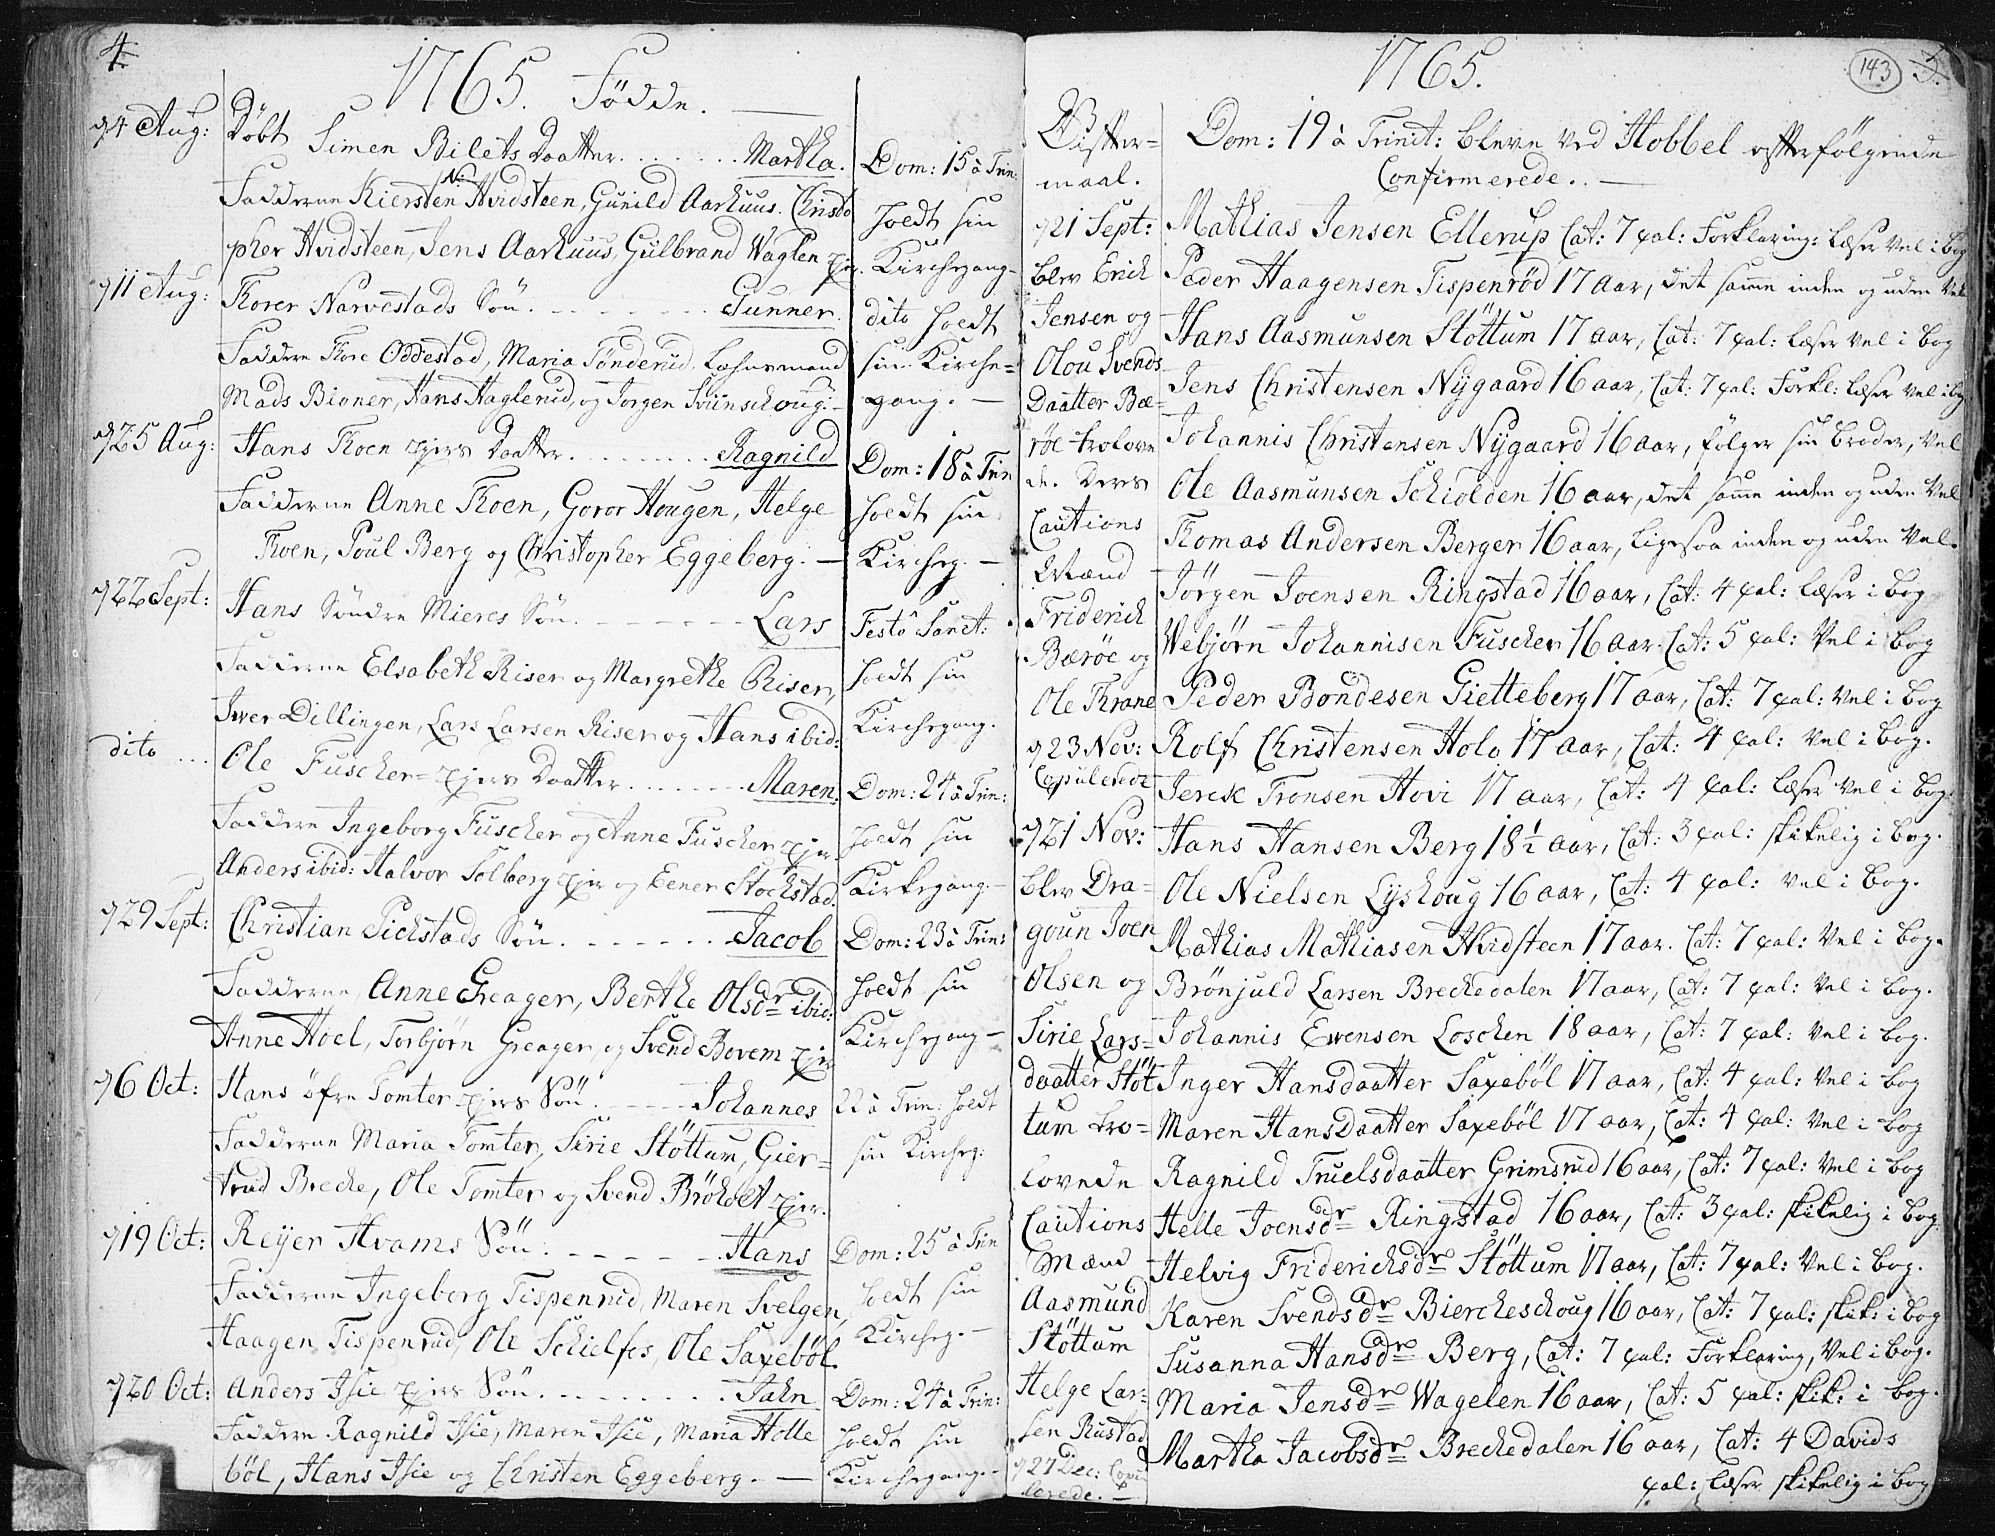 4
1765. Födde.
d 4 Aug: Döbt Simen Bilets Daatter. Martha.
Fadderne Kiersten N. Hvidsteen, Gunild Aarhuus. Christo
pher Hvidsteen, Jens Aarhuus, Gulbrand Waglen
d 11 Aug: Thorer Narvestads Sön. Gunner.
Faddere Thore Oddestad, Maria Tönderud. Lehnsmand
Mads Biöner, Hans Haglerud, og Jörgen Sviinschoug.
d 25 Aug: Hans Thoen Daatter. Ragnild
Fadderne Anne Thoen, Goror Hougen, Helge
Thoen, Poul Berg og Christopher Eggeberg.
d 22 Sept: Hans Söndre Mieres Sön. Lars
Fadderne Elsabeth Riser og Margrethe Riser,
Iwer Dillingen, Lars Larsen Riser og Hans ibid:
dito Ole Fuscher Daatter. Maren.
Faddere Ingeborg Fuscher og Anne Fuscher
Anders ibid: Halvor Solberg og Eener Stochstad.
d 29 Sept: Christian Pichstads Sön. Jacob
Fadderne Anne Greager, Berthe Olsdr ibid:
Anne Hoel, Torbjørn Greager, og Svend Bovem
d 6 Oct: Hans öfre Tomter Sön. Johannes
Fadderne Maria Tomter, Sirie Stöttum, Gier=
trud Breche, Ole Tomter og Svend Bröholt
d 19 Oct: Reijer Hvams Sön. Hans
Fadderne Ingeborg Tispenrud, Maren Svelgen,
Haagen Tispenrud, Ole Schielfos, Ole Saxeböl.
d 20 Oct: Anders Isie Sön. Jahn
Faddere Ragnild Isie, Maren Isie, Maria Holle
böl, Hans Isie og Christen Eggeberg.
Dom: 15 à Trin:
holdt sin
Kirchegang
dito holdt
sin Kirche=
gang.
Dom: 18 à Trin
holdt sin
Kircheg.
Festo Sanct:
holdt sin
Kirchegang.
Dom: 24 à Trin:
holdt sin
Kirkegang.
Dom: 23 à Trin:
holdt sin
Kirchegang
22 à Trin: holdt
sin Kircheg:
Dom: 25 à Trin
holdt sin
Kircheg.
Dom: 24 à Trin:
holdt sin
Kirchegang.
1765.
143
5.
Gifter=
maal.
d 21 Sept:
blev Erich
Jensen og
Olou Svends
Daatter Bæ=
röe trolove
de. Deres
Cautions
Mænd
Friderich
Bæröe og
Ole Thrane
d 23 Nov:
Copulerede
d 21 Nov:
blev Dra=
goun Joen
Olsen og
Sirie Lars=
daatter Stöt
tum tro=
lovede
Cautions
Mænd
Aasmund
Stöttum
Helge Lar=
sen Rustad
d 27 Dec: Copu
lerede.
Dom: 19 à Trinit: bleve ved Hobbel efterfölgende
Confirmerede.
Mathias Jensen Ellerup Cat: 7 psal: Forklaring: læser vel i bog
Peder Haagensen Tispenröd 17 aar, det samme inden og uden vel
Hans Aasmunsen Stöttum 17 aar, Cat: 7 psal: læser vel i bog
Jens Christensen Nijgaard 16 aar, Cat: 7 psal: Forkl: læser vel i bog
Johannis Christensen Nijgaard 16 aar, fölger sin broder, vel
Ole Aasmunsen Schiolden 16 aar, det samme inden og uden vel
Thomas Andersen Berger 16 aar, ligesaa inden og uden vel.
Jörgen Joensen Ringstad 16 aar, Cat: 4 psal: læser i bog
Webjørn Johannisen Fuscher 16 aar. Cat: 5 psal: vel i bog
Peder Bondesen Gietteberg 17 aar, Cat: 7 psal: vel i bog
Rolf Christensen Holo 17 aar, Cat: 4 psal: vel i bog.
Jerck Tronsen Hovi 17 aar, Cat: 4 psal: læser vel i bog.
Hans Hansen Berg 18 1/2 aar, Cat: 3 psal: skikelig i bog.
Ole Nielsen Lijshoug 16 aar, Cat: 4 psal: vel i bog.
Mathias Mathiasen Hvidsteen 17 aar. Cat: 7 psal: vel i bog.
Brönjuld Larsen Brechedalen 17 aar, Cat: 7 psal: vel i bog.
Johannis Ewensen Loschen 18 aar, Cat: 7 psal: vel i bog.
Inger Hansdaatter Saxeböl 17 aar, Cat: 4 psal: vel i bog
Maren Hansdaatter Saxeböl 17 aar, Cat: 4 psal: vel i bog
Ragnild Truelsdaatter Grimsrud 16 aar, Cat: 7 psal: vel i bog
Helle Joensdr Ringstad 16 aar, Cat: 3 psal: skikelig i bog.
Helvig Friderichsdr Stöttum 17 aar, Cat: 7 psal: vel i bog.
Karen Svendsdr Bierckeschoug 16 aar, Cat: 7 psal: skik: i bog
Susanna Hansdr Berg, Cat: 7 psal: Forklaring, vel i bog.
Maria Jensdr Wagelen 16 aar, Cat: 5 psal: skik: i bog.
Martha Jacobsdr Brechedalen 16 aar, Cat: 4 Davids
psal: læser skikelig i bog